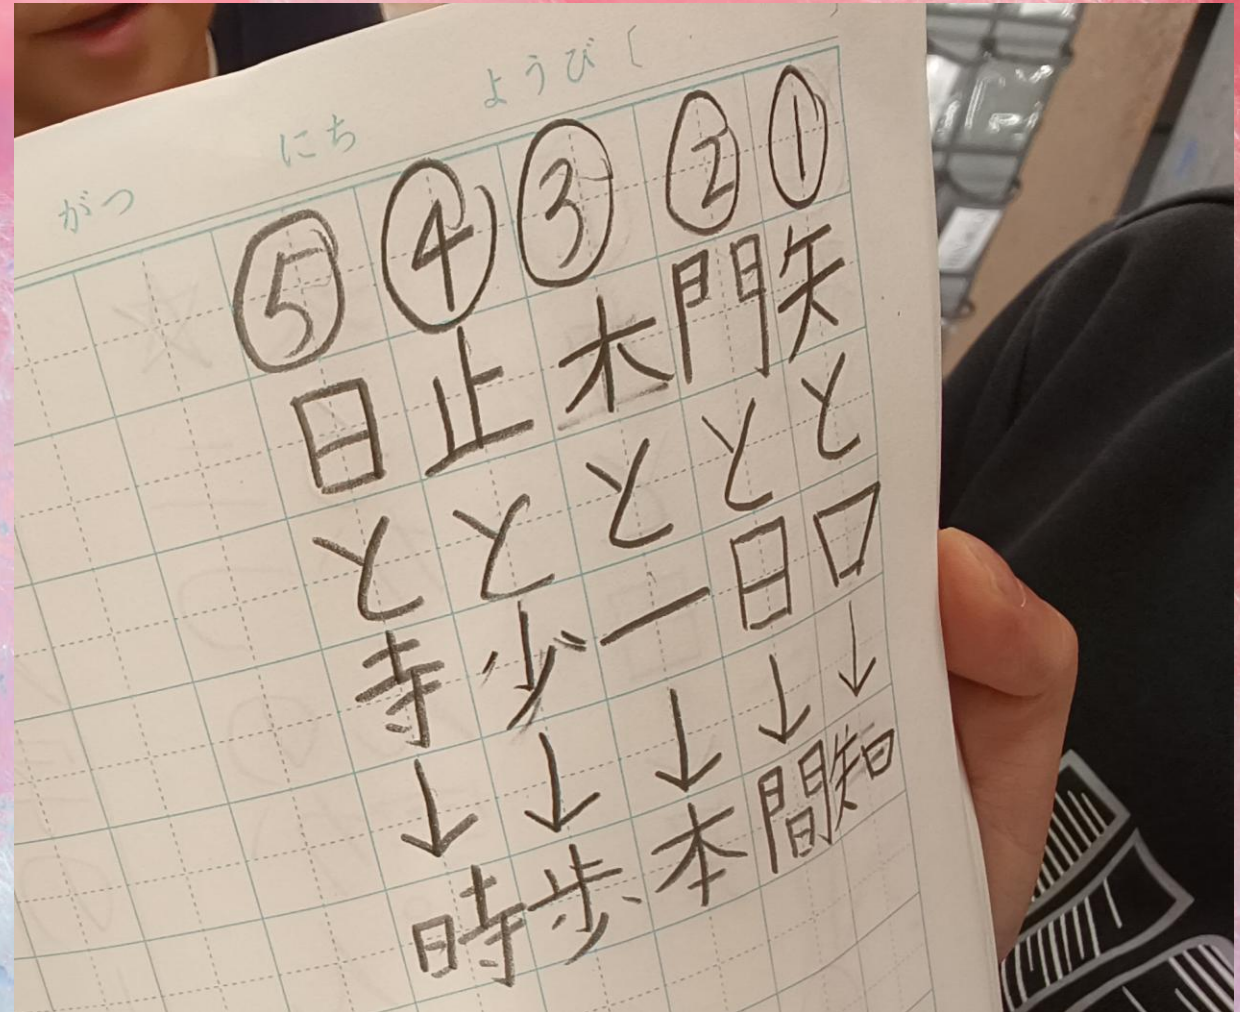 がつ にち ようび〔
①矢と口→知
②門と日→間
③木と一→本
④止と少→歩
⑤日と寺→時